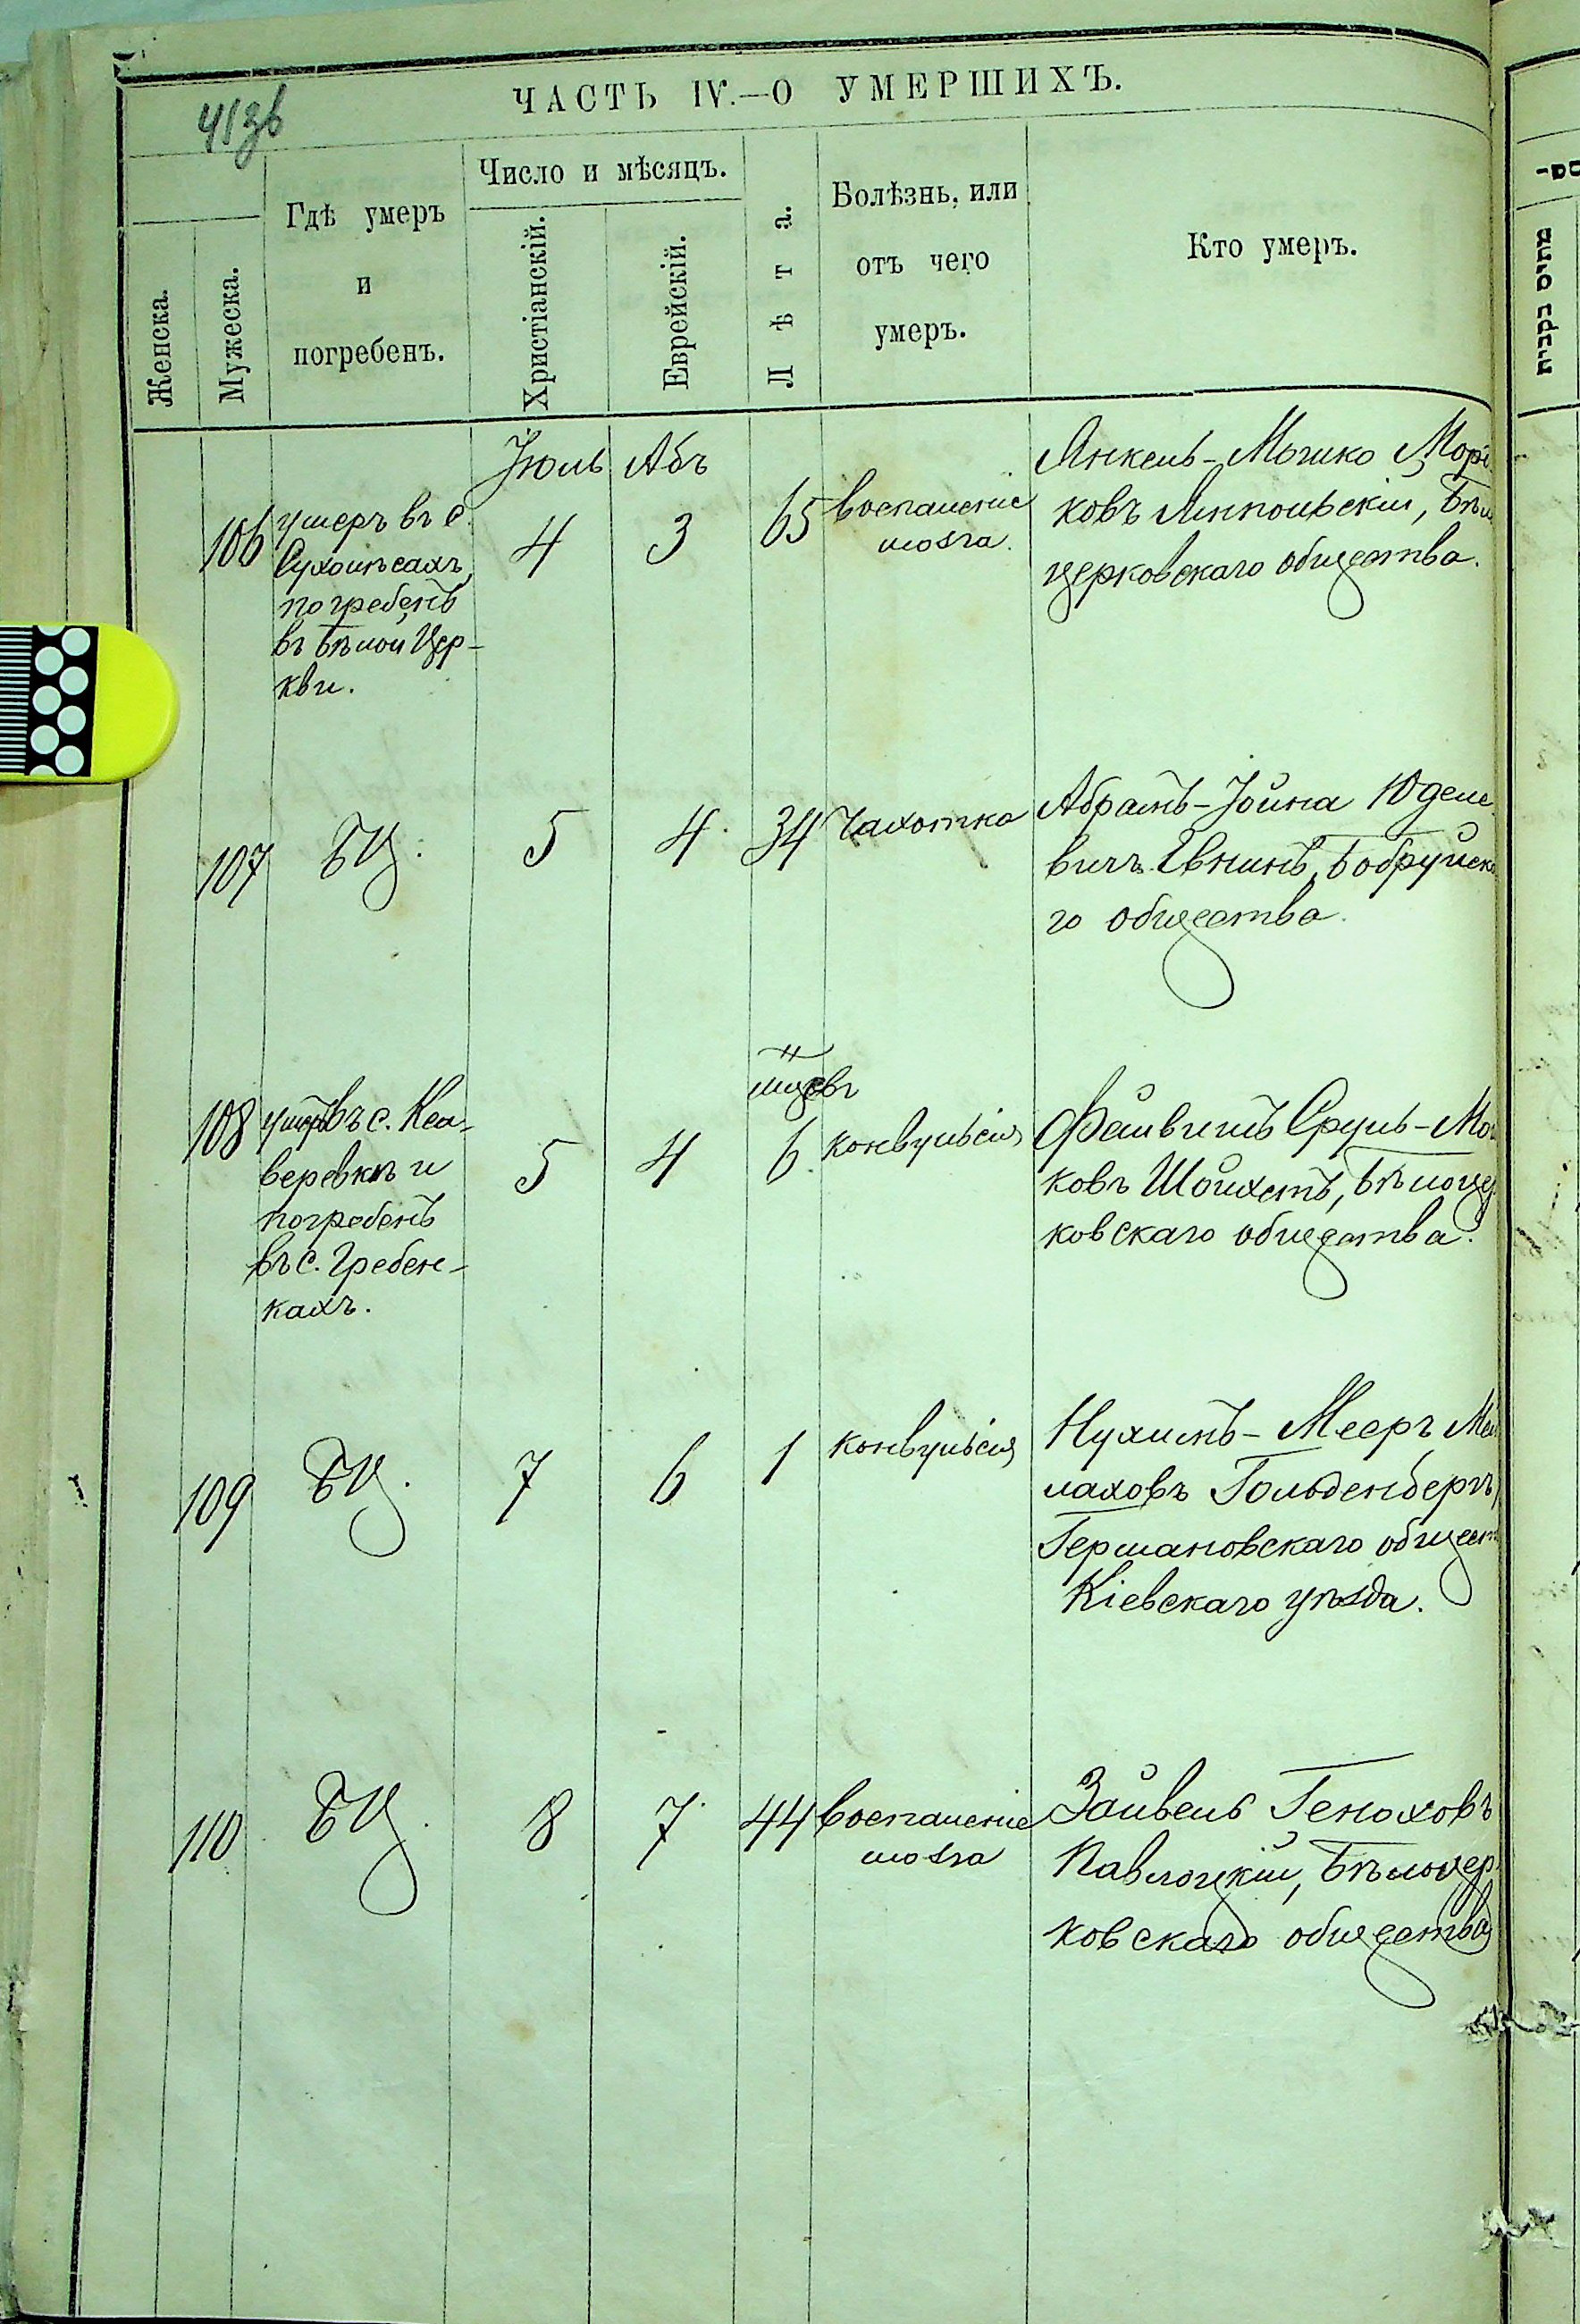 ЧАСТЬ IV.—О УМЕРШИХЪ.
413б
Женска.
Мужеска.
Гдѣ умеръ
и
погребенъ.
Число и мѣсяцъ.
Христіанскій.
Еврейскій.
Лѣта.
Болѣзнь, или
отъ чего
умеръ.
Кто умеръ.
Іюль Абъ
106
умеръ въ с.
Сухолѣсахъ,
погребенъ
въ Бѣлой Цер-
кви.
4
3
65
воспаленіе
мозга.
Янкель-Мошко Мор
ковъ Ямпольскій, Бѣл
церковскаго общества.
107
БЦ.
5
4
34
Чахотка
Абрамъ-Іойна Юделе
вичъ Евнинъ, Бобруйска
го общества.
108
умеръ въ с. Кса-
веревкѣ и
погребенъ
въ с. Гребен-
кахъ.
5
4
мцевъ
6
конвульсія
Файвишъ Сруль-Мош
ковъ Шойхетъ, Бѣлоце
ковскаго общества.
109
БЦ.
7
6
1
конвульсія
Нухимъ-Мееръ Мей
лаховъ Гольденбергъ,
Германовскаго общест
Кіевскаго уѣзда.
110
БЦ.
8
7
44
воспаленіе
мозга
Зайвель Геноховъ
Паволоцкій, Бѣлоцер
ковскаго общества